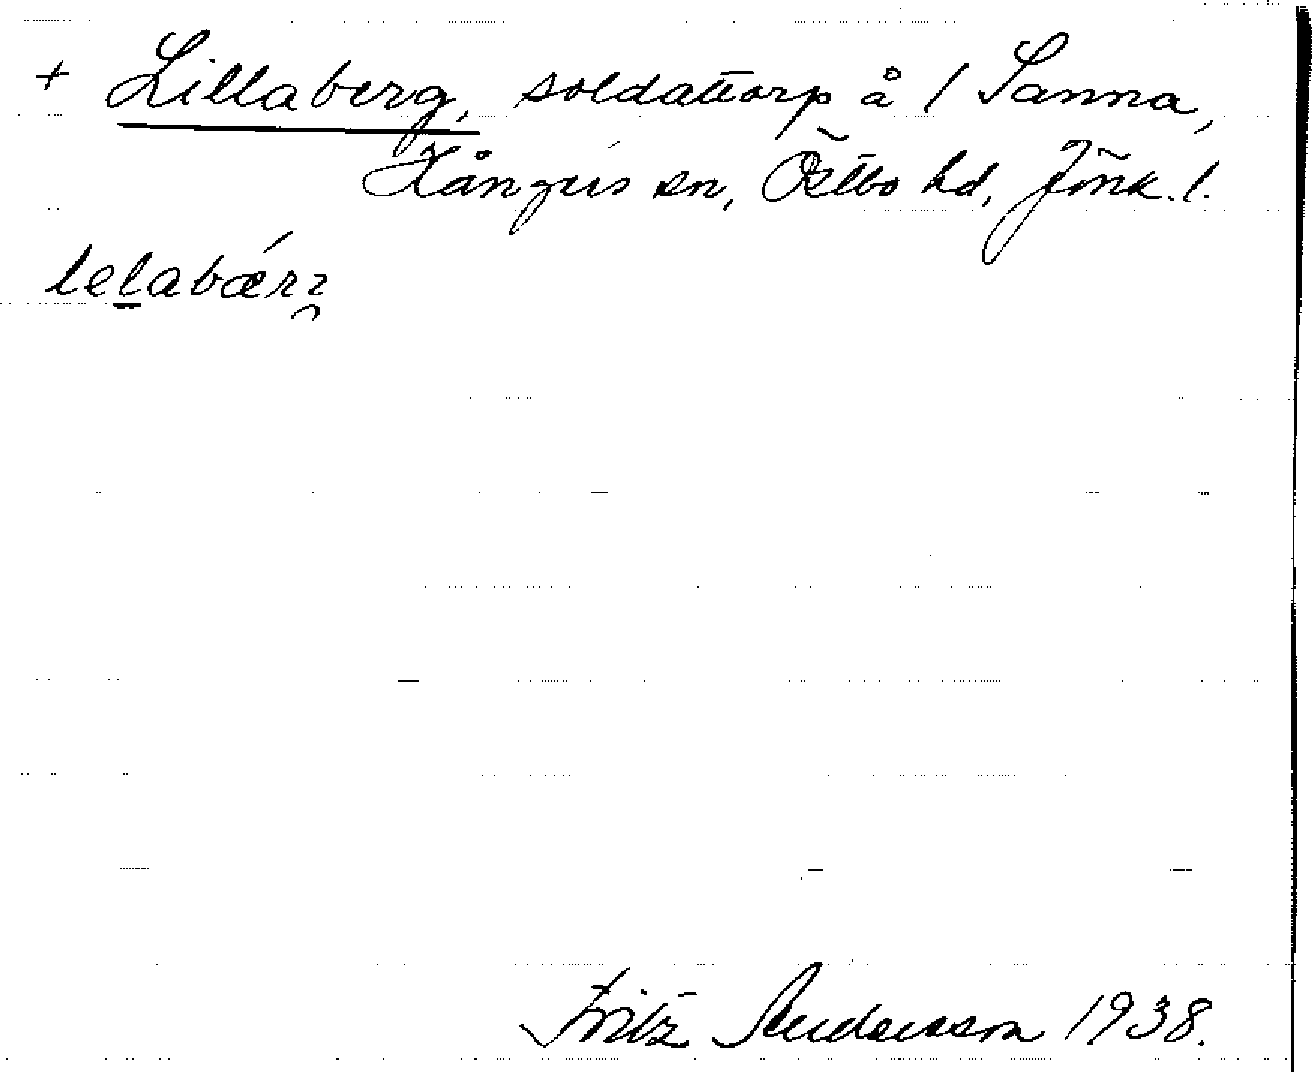 + Lillaberg, soldattorp å 1 Sanna,
Kånna sn, Östbo hd, Jönk. l.
lelabær
Fritz Andersson 1938.